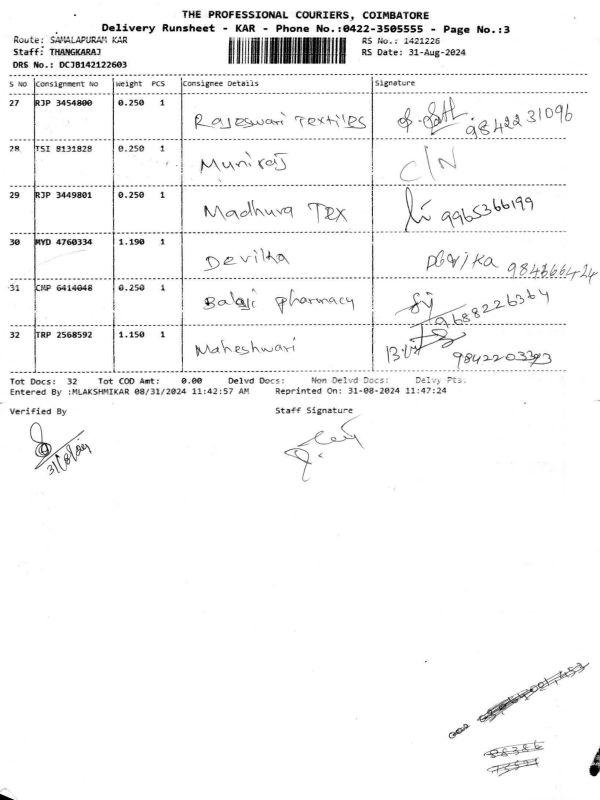 THE PROFESSIONAL COURIERS, COIMBATORE
Delivery Runsheet - KAR - Phone No.:0422-3505555 - Page No.:3
Route: SAMALAPURAM KAR
RS No.: 1421226
Staff: THANGKARAJ
RS Date: 31-Aug-2024
DRS No.: DCJB142122603
S No Consignment No Weight PCS Consignee Details Signature
27 RJP 3454800 0.250 1 Rajeswari Textiles 9842231096
28 TSI 8131828 0.250 1 Muniraj C/N
29 RJP 3449801 0.250 1 Madhura Tex 9965366199
30 MYD 4760334 1.190 1 Devilka Devika
31 CMP 6414048 0.250 1 Balaji pharmacy 9688226364
32 TRP 2568592 1.150 1 Maheshwari
Tot Docs: 32 Tot COD Amt: 0.00 Delvd Docs: Non Delvd Docs: Delvy Pts:
Entered By :MLAKSHMIKAR 08/31/2024 11:42:57 AM Reprinted On: 31-08-2024 11:47:24
Verified By Staff Signature
31/8/24